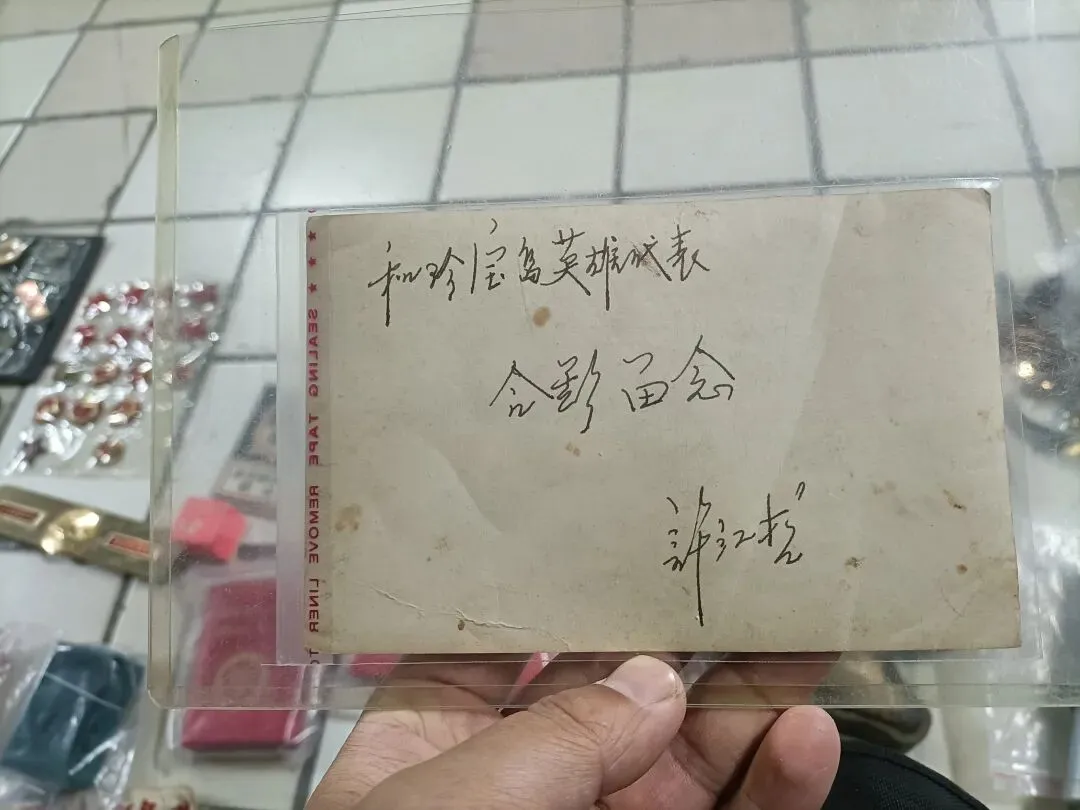 和珍宝岛英雄代表
合影留念
許江
★ ★ ★ SEALING TAPE REMOVE LINER TO